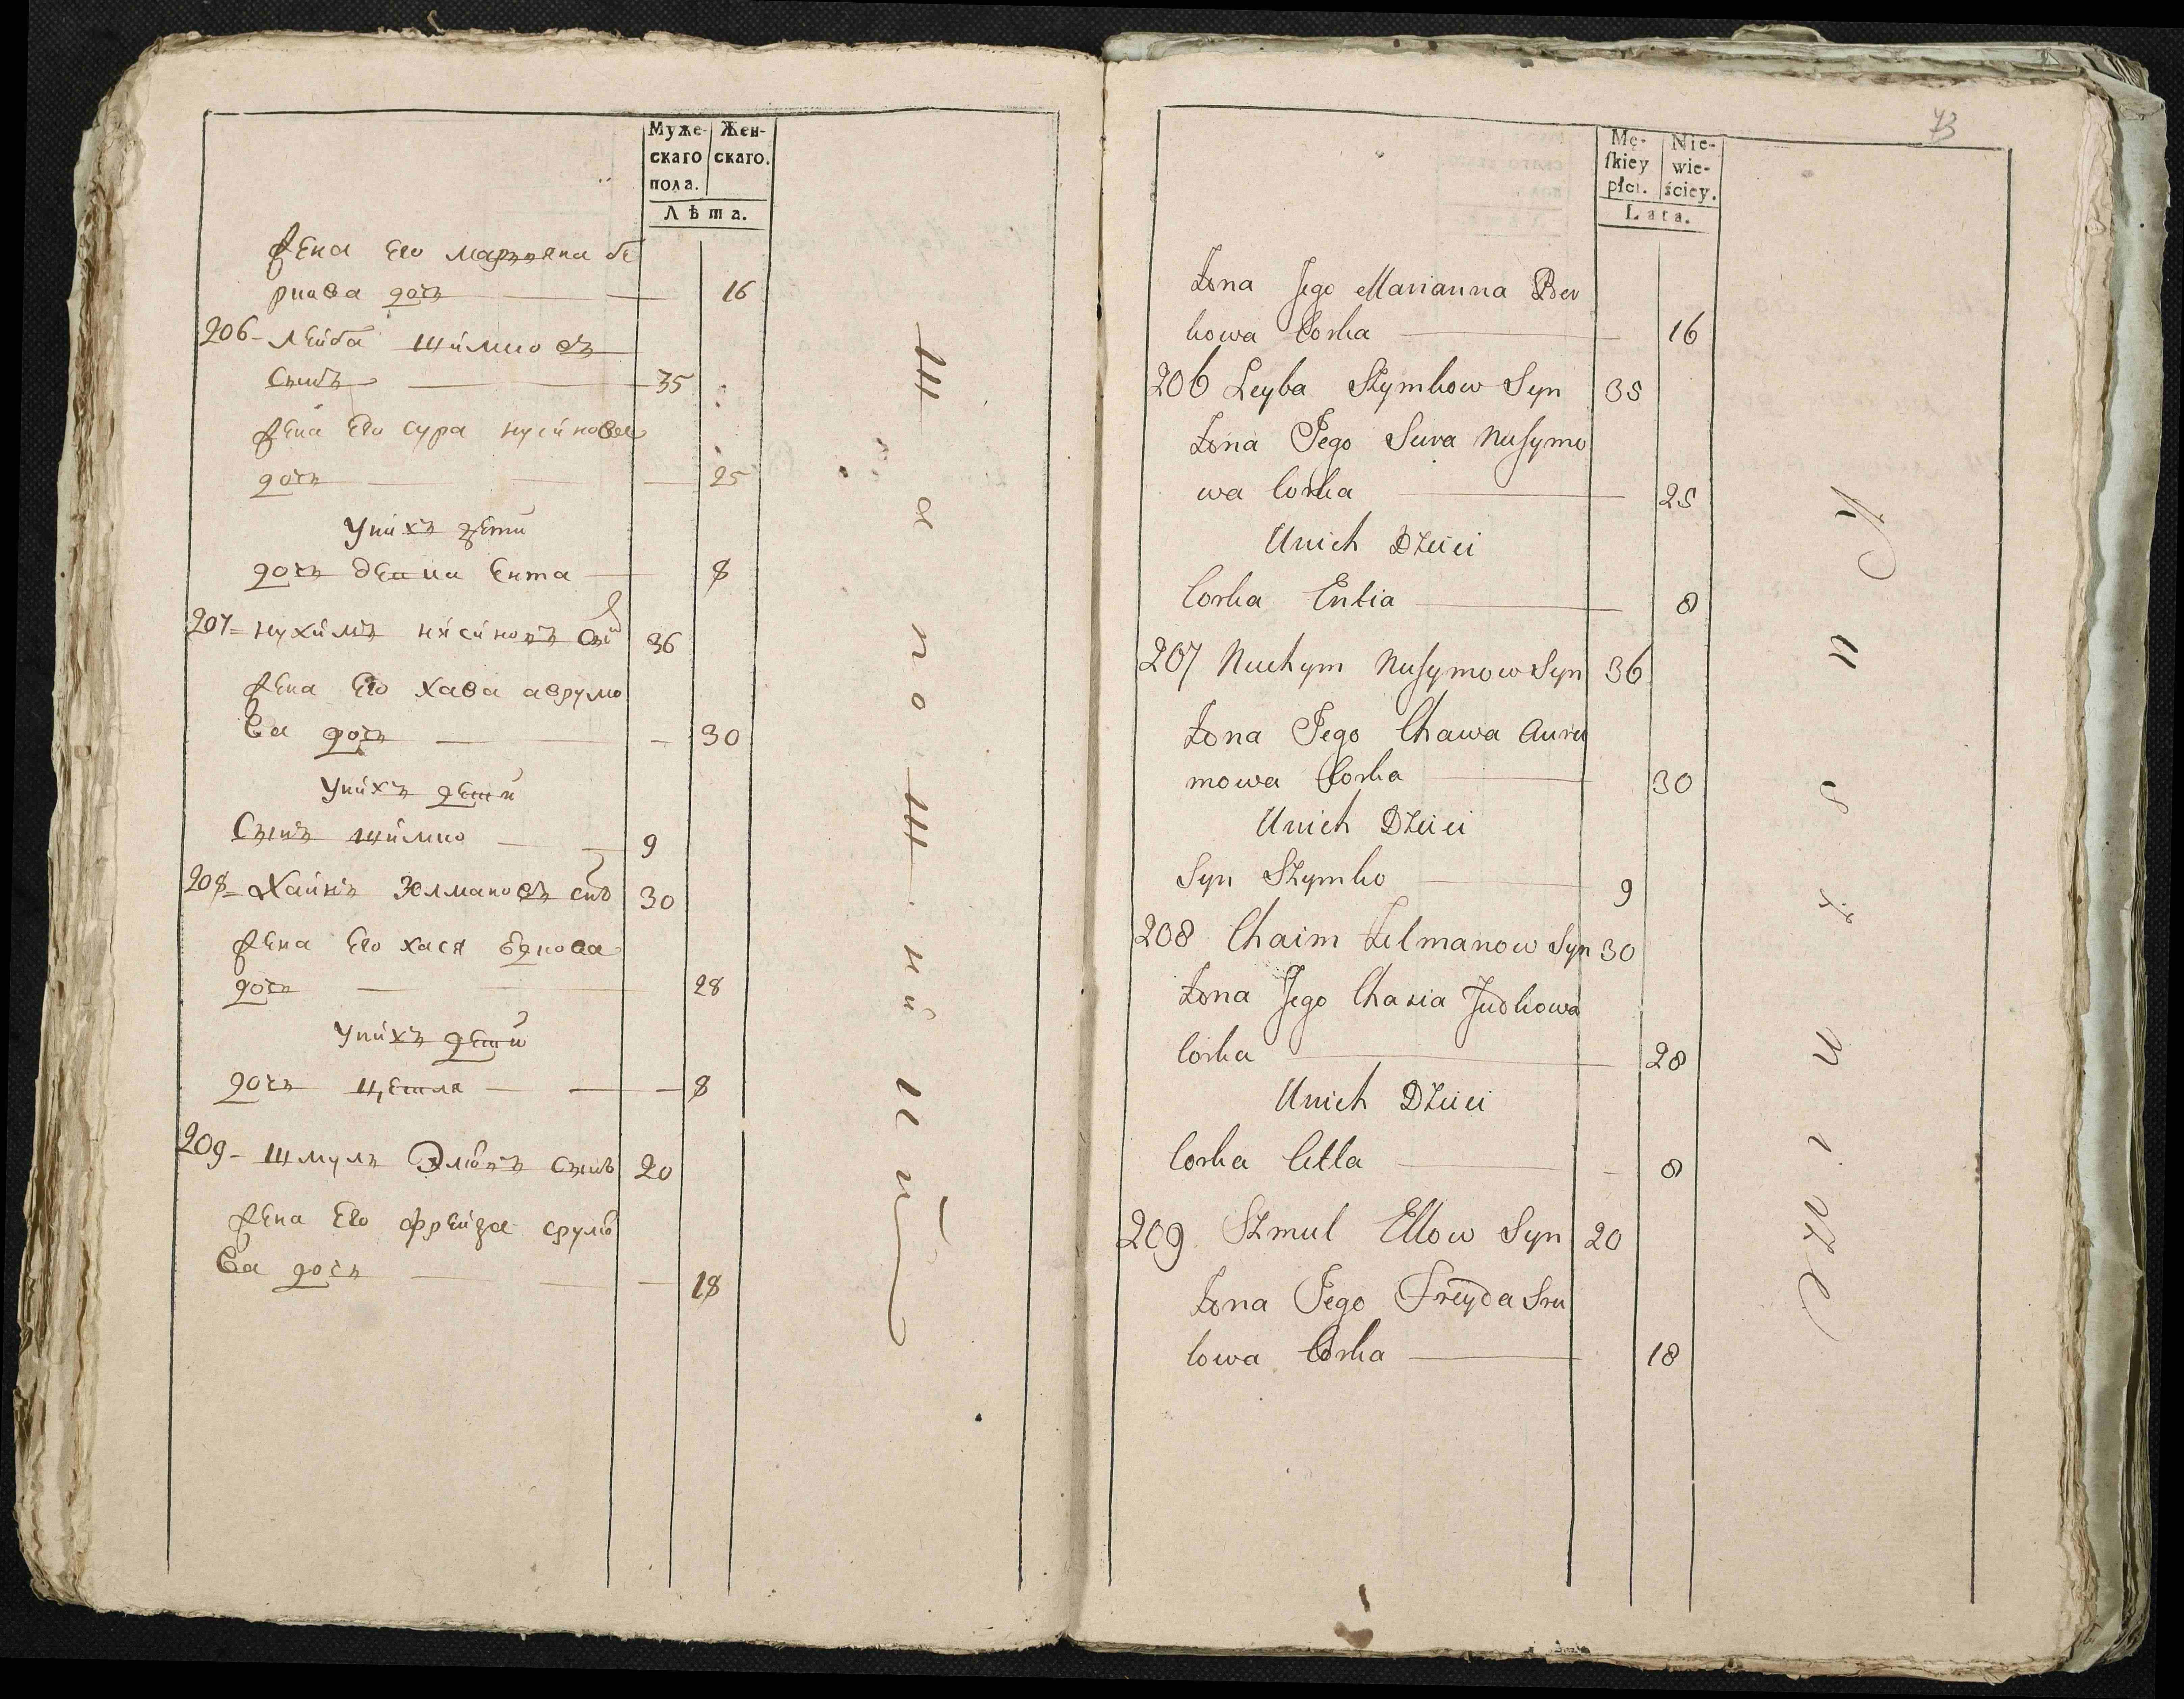 Муже-
скаго
пола.
Жен-
скаго.
Лѣта.
Жена Его Марнянна бе
ркова дочь 16
206 Лейба Шимковъ
Сынъ 35
Жена Его Сура нусимова
дочь 25
Унихъ дети
дочь Ента 8
207 нухимъ нисиновъ 36
Жена Его Хава аврумо
ва дочь 30
Унихъ дети
Сынъ шимко 9
208 Хаимъ Зелмановъ 30
Жена Его хася
дочь 28
Унихъ дети
дочь Цетля 8
209 Шмуль сынъ 20
Жена Его фрейда срулю
ва дочь 18
73
Mę-
ſkiey
płci.
Nie-
wie-
ściey.
Lata.
Żona Jego Marianna Ber
kowa Corka 16
206 Leyba Szymkow Syn 35
Żona Jego Sura Nusymo
wa Corka 25
Unich Dzieci
Corka Entia 8
207 Nuchym Nusymow Syn 36
Żona Jego Chawa Auru
mowa Corka 30
Unich Dzieci
Syn Szymko 9
208 Chaim Zelmanow Syn 30
Żona Jego Chasia Judkowa
Corka 28
Unich Dzieci
Corka Cetla 8
209 Szmul Ellow Syn 20
Żona Jego Freyda Sru
lowa Corka 18